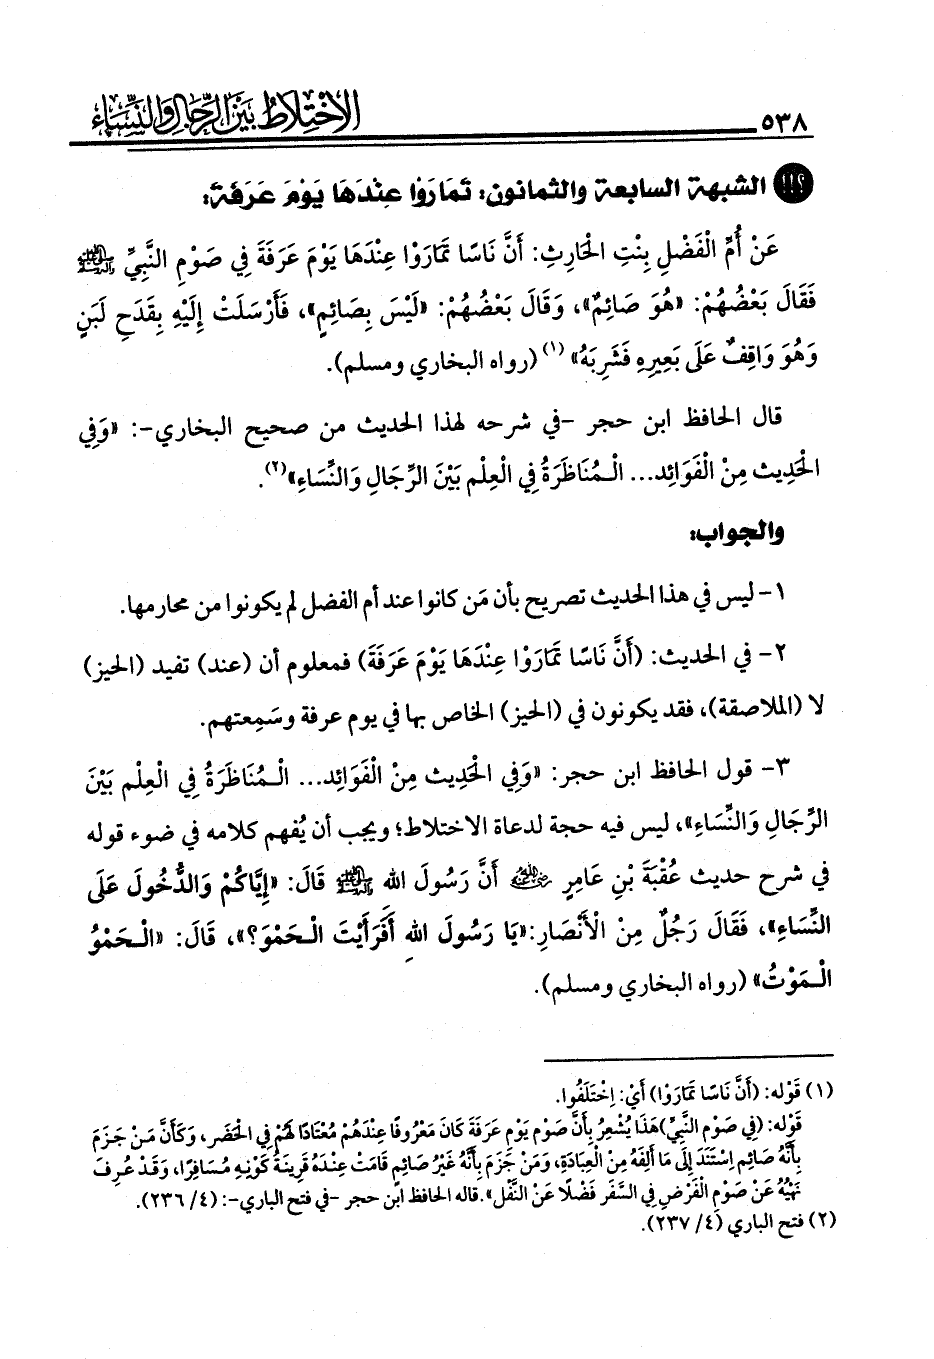 الاختلاط بين الرجال والنساء
٥٣٨
الشبهة السابعة والثمانون: تَمَارَوْا عِنْدَهَا يَوْمَ عَرَفَةَ:
عَنْ أُمِّ الْفَضْلِ بِنْتِ الْحَارِثِ: أَنَّ نَاسًا تَمَارَوْا عِنْدَهَا يَوْمَ عَرَفَةَ فِي صَوْمِ النَّبِيِّ ﷺ
فَقَالَ بَعْضُهُمْ: «هُوَ صَائِمٌ»، وَقَالَ بَعْضُهُمْ: «لَيْسَ بِصَائِمٍ»، فَأَرْسَلَتْ إِلَيْهِ بِقَدَحِ لَبَنٍ
وَهُوَ وَاقِفٌ عَلَى بَعِيرِهِ فَشَرِبَهُ» (١) (رواه البخاري ومسلم).
قال الحافظ ابن حجر -في شرحه لهذا الحديث من صحيح البخاري-: «وَفِي
الْحَدِيث مِنْ الْفَوَائِد... الْـمُنَاظَرَةُ فِي الْعِلْم بَيْنَ الرِّجَالِ وَالنِّسَاءِ»(٢).
والجواب:
١- ليس في هذا الحديث تصريح بأن مَن كانوا عند أم الفضل لم يكونوا من محارمها.
٢- في الحديث: (أَنَّ نَاسًا تَمَارَوْا عِنْدَهَا يَوْمَ عَرَفَةَ) فمعلوم أن (عند) تفيد (الحيز)
لا (الملاصقة)، فقد يكونون في (الحيز) الخاص بها في يوم عرفة وسَمِعتهم.
٣- قول الحافظ ابن حجر: «وَفِي الْحَدِيث مِنْ الْفَوَائِد... الْـمُنَاظَرَةُ فِي الْعِلْم بَيْنَ
الرِّجَالِ وَالنِّسَاءِ»، ليس فيه حجة لدعاة الاختلاط؛ ويجب أن يُفهم كلامه في ضوء قوله
في شرح حديث عُقْبَةَ بْنِ عَامِرٍ رضي الله عنه أَنَّ رَسُولَ الله ﷺ قَالَ: «إِيَّاكُمْ وَالدُّخُولَ عَلَى
النِّسَاءِ»، فَقَالَ رَجُلٌ مِنْ الْأَنْصَارِ:«يَا رَسُولَ اللهِ أَفَرَأَيْتَ الْـحَمْوَ؟»، قَالَ: «الْـحَمْوُ
الْـمَوْتُ» (رواه البخاري ومسلم).
(١) قَوْله: (أَنَّ نَاسًا تَمَارَوْا) أَيْ: اِخْتَلَفُوا.
قَوْله: (فِي صَوْم النَّبِيّ)هَذَا يُشْعِرُ بِأَنَّ صَوْم يَوْم عَرَفَةَ كَانَ مَعْرُوفًا عِنْدَهُمْ مُعْتَادًا لَهُمْ فِي الْحَضَر، وَكَأَنَّ مَنْ جَزَمَ
بِأَنَّهُ صَائِم اِسْتَنَدَ إِلَى مَا أَلِفَهُ مِنْ الْعِبَادَةِ، وَمَنْ جَزَمَ بِأَنَّهُ غَيْرُ صَائِمٍ قَامَتْ عِنْدَهُ قَرِينَةُ كَوْنِهِ مُسَافِرًا، وَقَدْ عُرِفَ
نَهْيُهُ عَنْ صَوْمِ الْفَرْضِ فِي السَّفَر فَضْلًا عَنْ النَّفْل».قاله الحافظ ابن حجر -في فتح الباري-: (٤/ ٢٣٦).
(٢) فتح الباري (٤/ ٢٣٧).